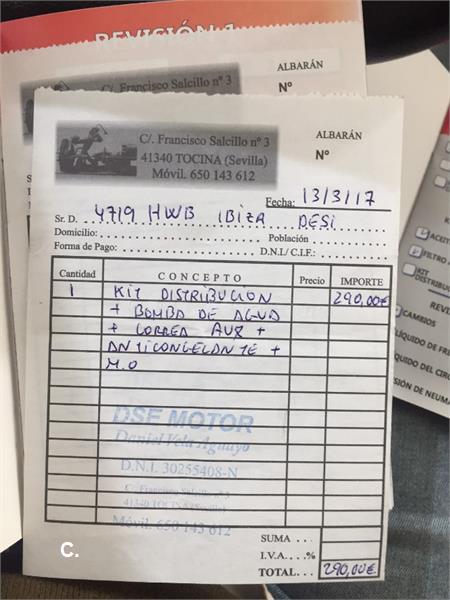 REVISIÓN 1
ALBARÁN
C/. Francisco Salcillo nº 3
Nº
C/. Francisco Salcillo nº 3
41340 TOCINA (Sevilla)
Móvil. 650 143 612
ALBARÁN
Nº
Fecha: 13/3/17
Sr. D. 4719 HWB IBIZA DESI
Domicilio: Población
Forma de Pago: D.N.I./ C.I.F.:
Cantidad CONCEPTO Precio IMPORTE
1 KIT DISTRIBUCION 290,00€
+ BOMBA DE AGUA
+ CORREA AUX +
ANTICONGELANTE +
M.O
DSF MOTOR
Daniel Vela Aguayo
D.N.I. 30255408-N
C. Francisco Salcillo nº 3
41340 TOCINA (Sevilla)
Móvil. 650 143 612
SUMA
I.V.A. %
TOTAL 290,00€
C.
ACEIT
FILTRO
KIT
DISTRIBUC
REVI
CAMBIOS
LÍQUIDO DE FR
QUIDO DEL CIR
SIÓN DE NEUMÁ